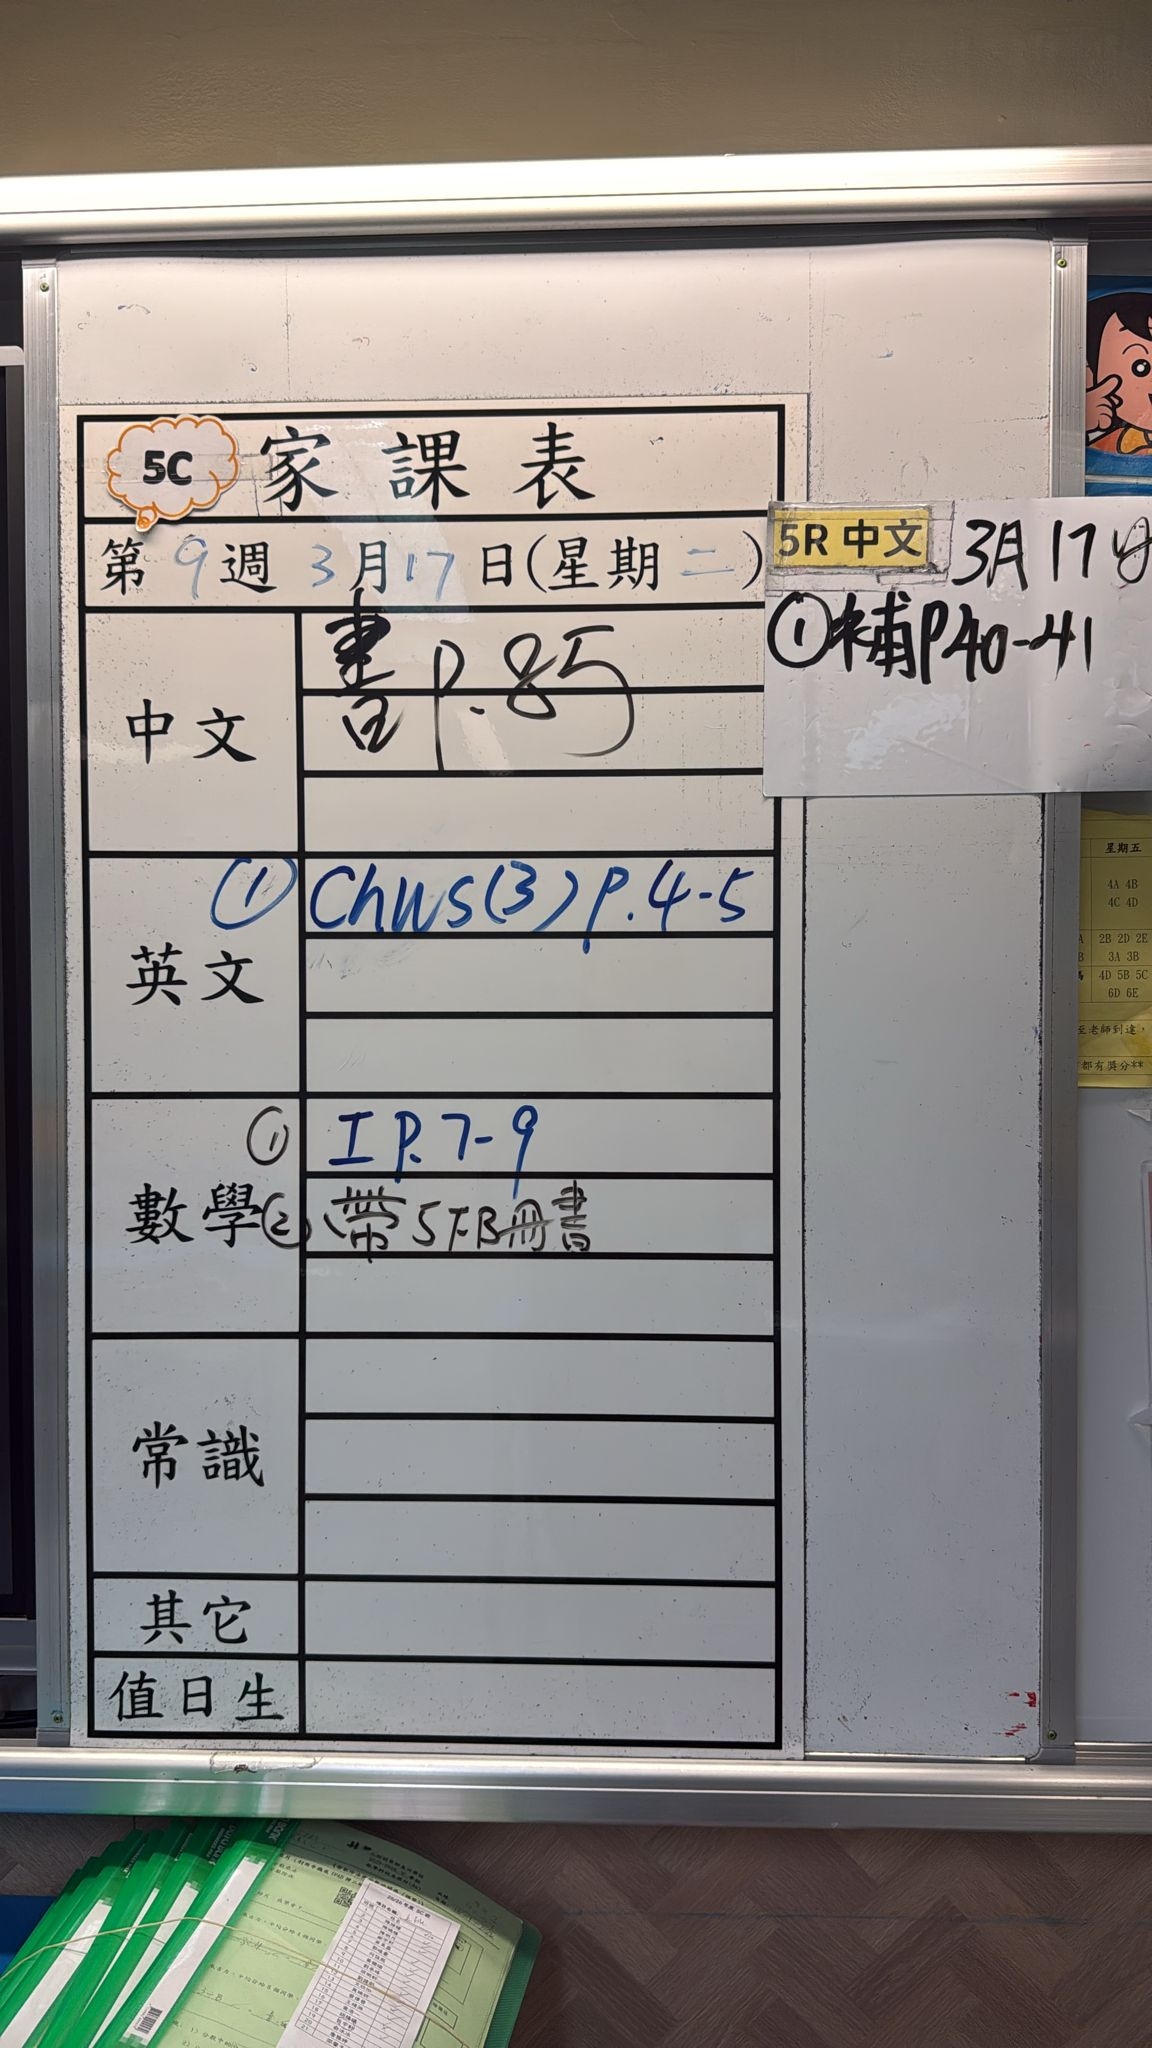 5C 家課表
第9週 3月17日(星期二)
中文
書P.85
英文
① Ch WS(3) P.4-5
數學
① I P.7-9
② 帶5下B冊書
常識
其它
值日生
5R 中文 3月17日
①補P40-41
星期五
4A 4B
4C 4D
2B 2D 2E
3A 3B
4D 5B 5C
6D 6E
至老師到達，
都有獎分**